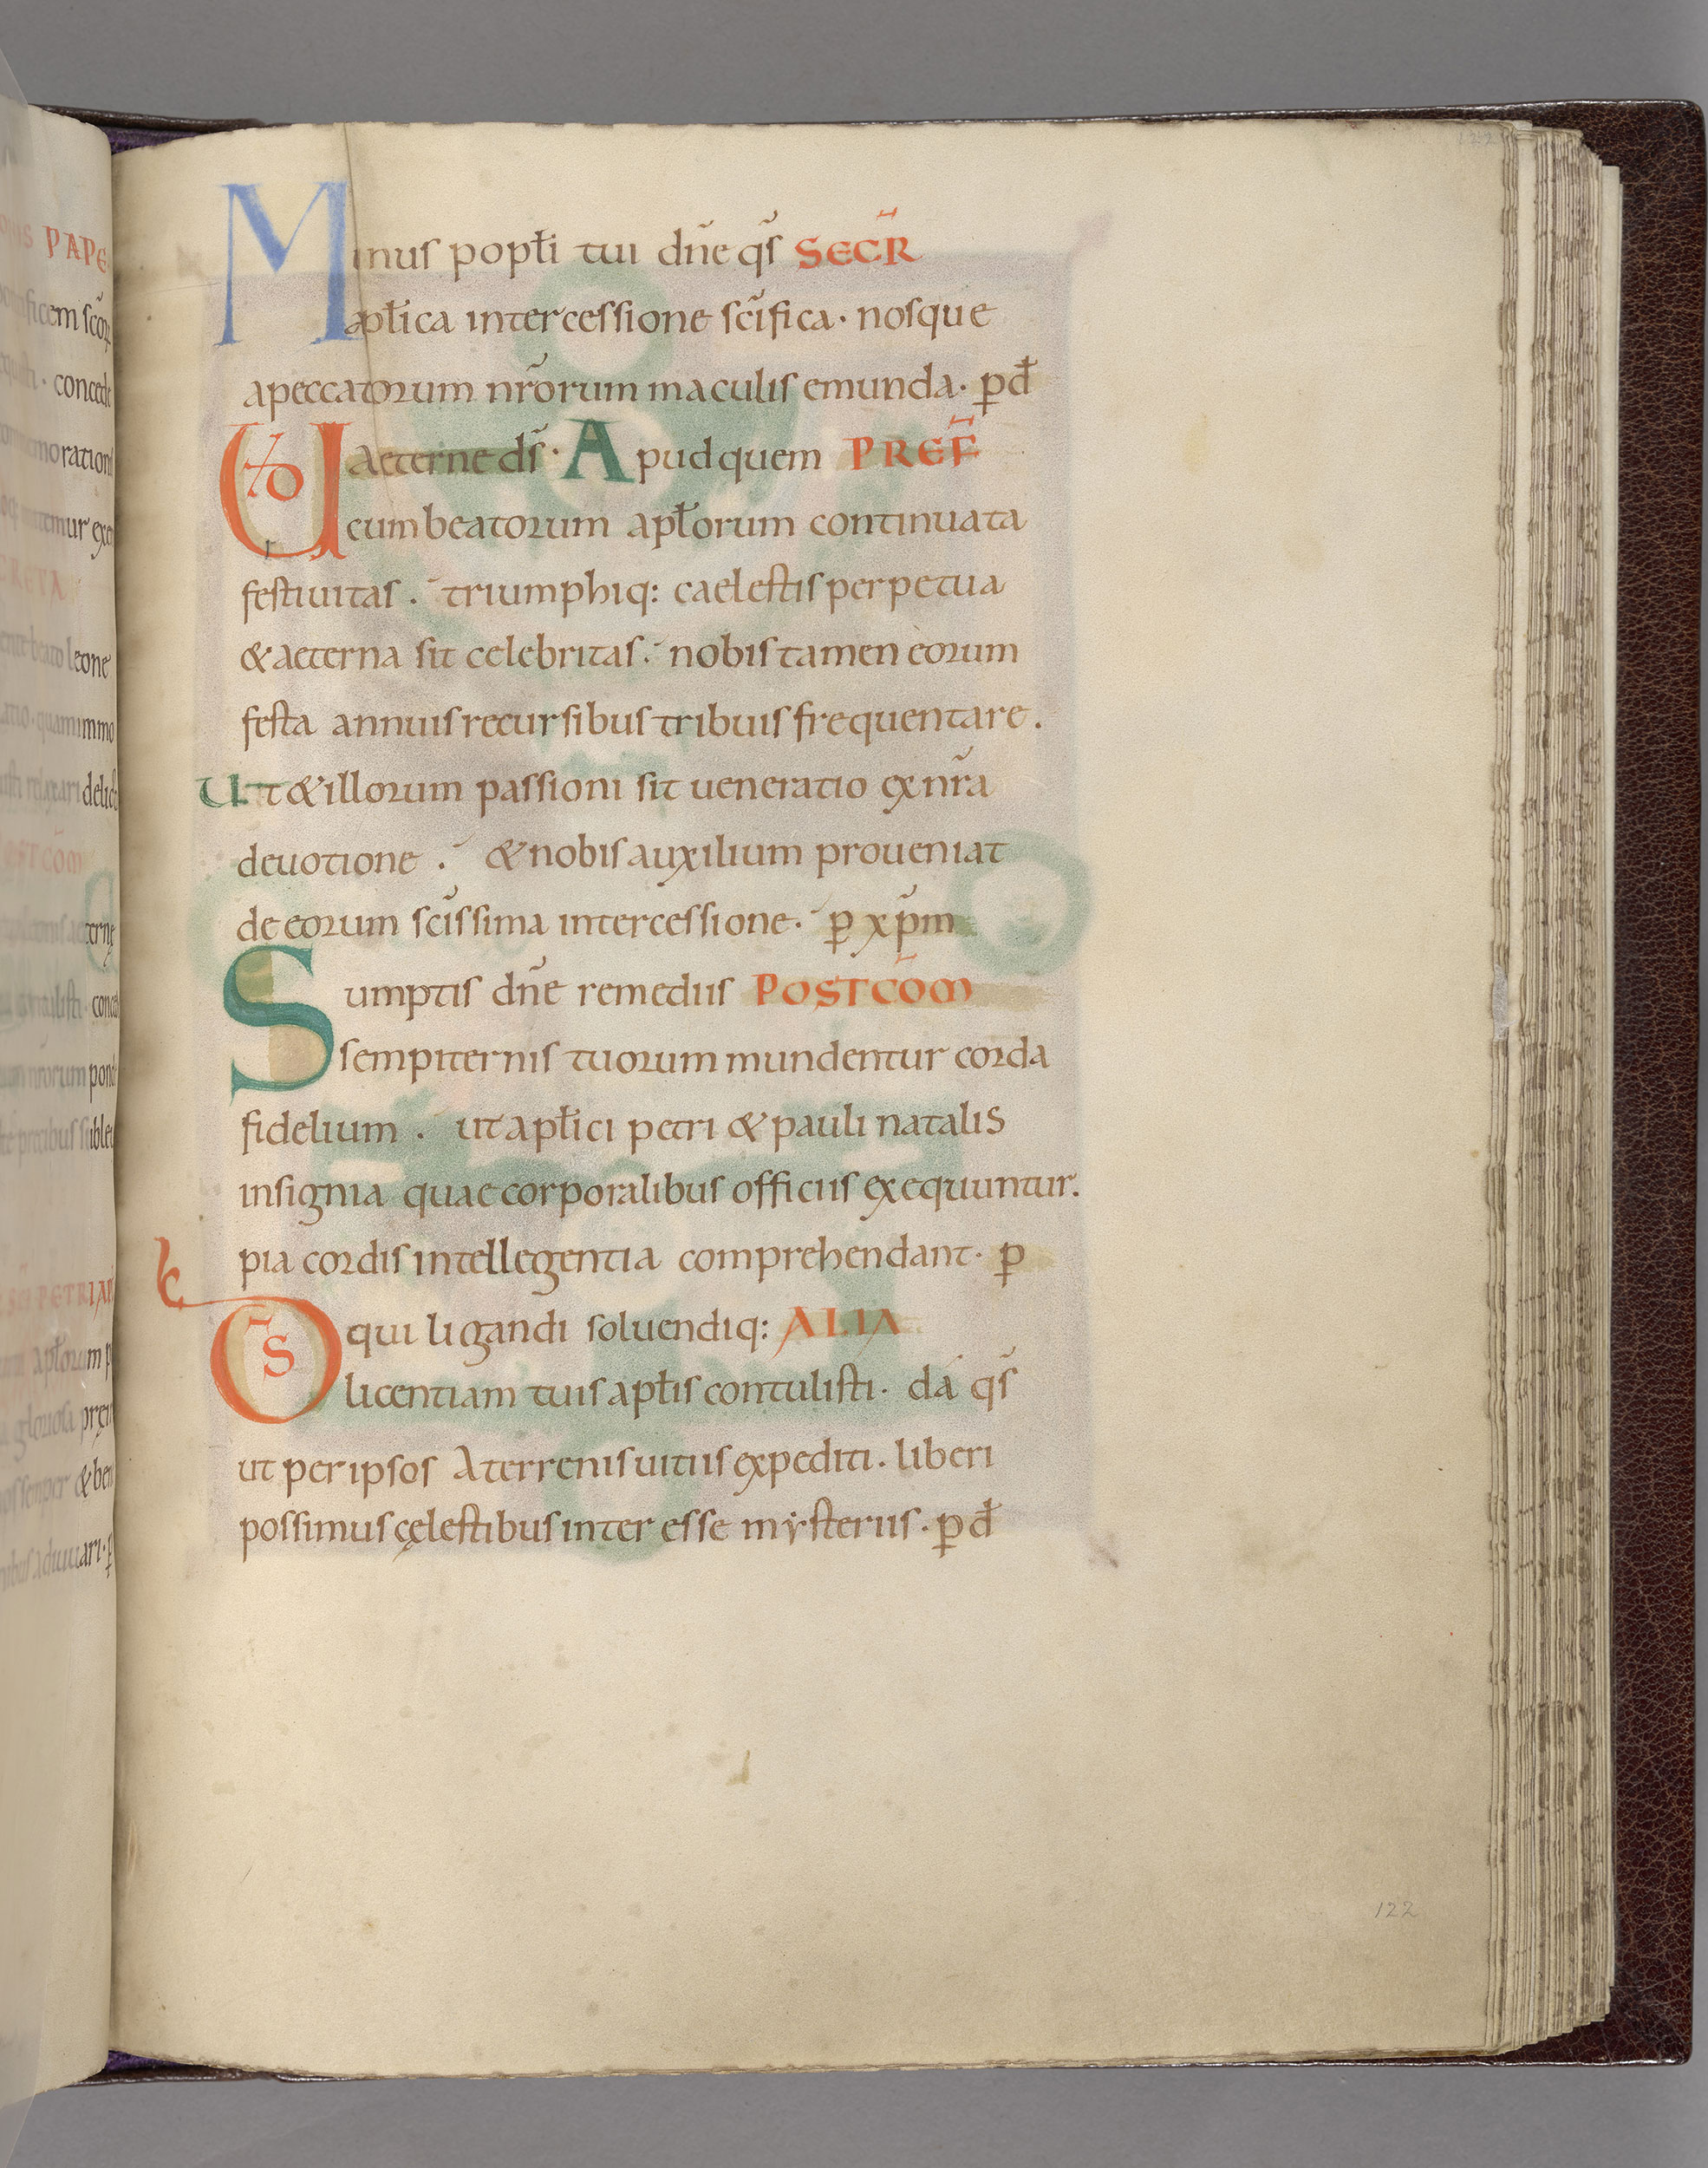 Minus popłi tui dñe qs̃ SECR̃
apłica intercessione sc̃ifica· nosque
apeccatorum nr̃orum maculis emunda· p̱ đ
UO aeterne ds̃· Apud quem PREF̃
cum beatorum apłorum continuata
festiuitas . triumphiq: caelestis perpetua
& aeterna sit celebritas. nobis tamen eorum
festa annuis recursibus tribuis frequentare.
Ut & illorum passioni sit ueneratio ex nr̃a
deuotione . & nobis auxilium proueniat
de eorum sc̃issima intercessione· p̱ xp̃m
Sumptis dñe remediis POSTCOM̃
sempiternis tuorum mundentur corda
fidelium . ut apłici petri & pauli natalis
insignia quae corporalibus officiis exequuntur.
pia cordis intellegentia comprehendant· p̱
D̃S qui ligandi soluendiq: ALIA
licentiam tuis apłis contulisti· da qs̃
ut per ipsos Aterrenis uitiis expediti . liberi
possimus cęlestibus inter esse mẏsteriis· p̱ đ
122
122
PAPE
concede
leone